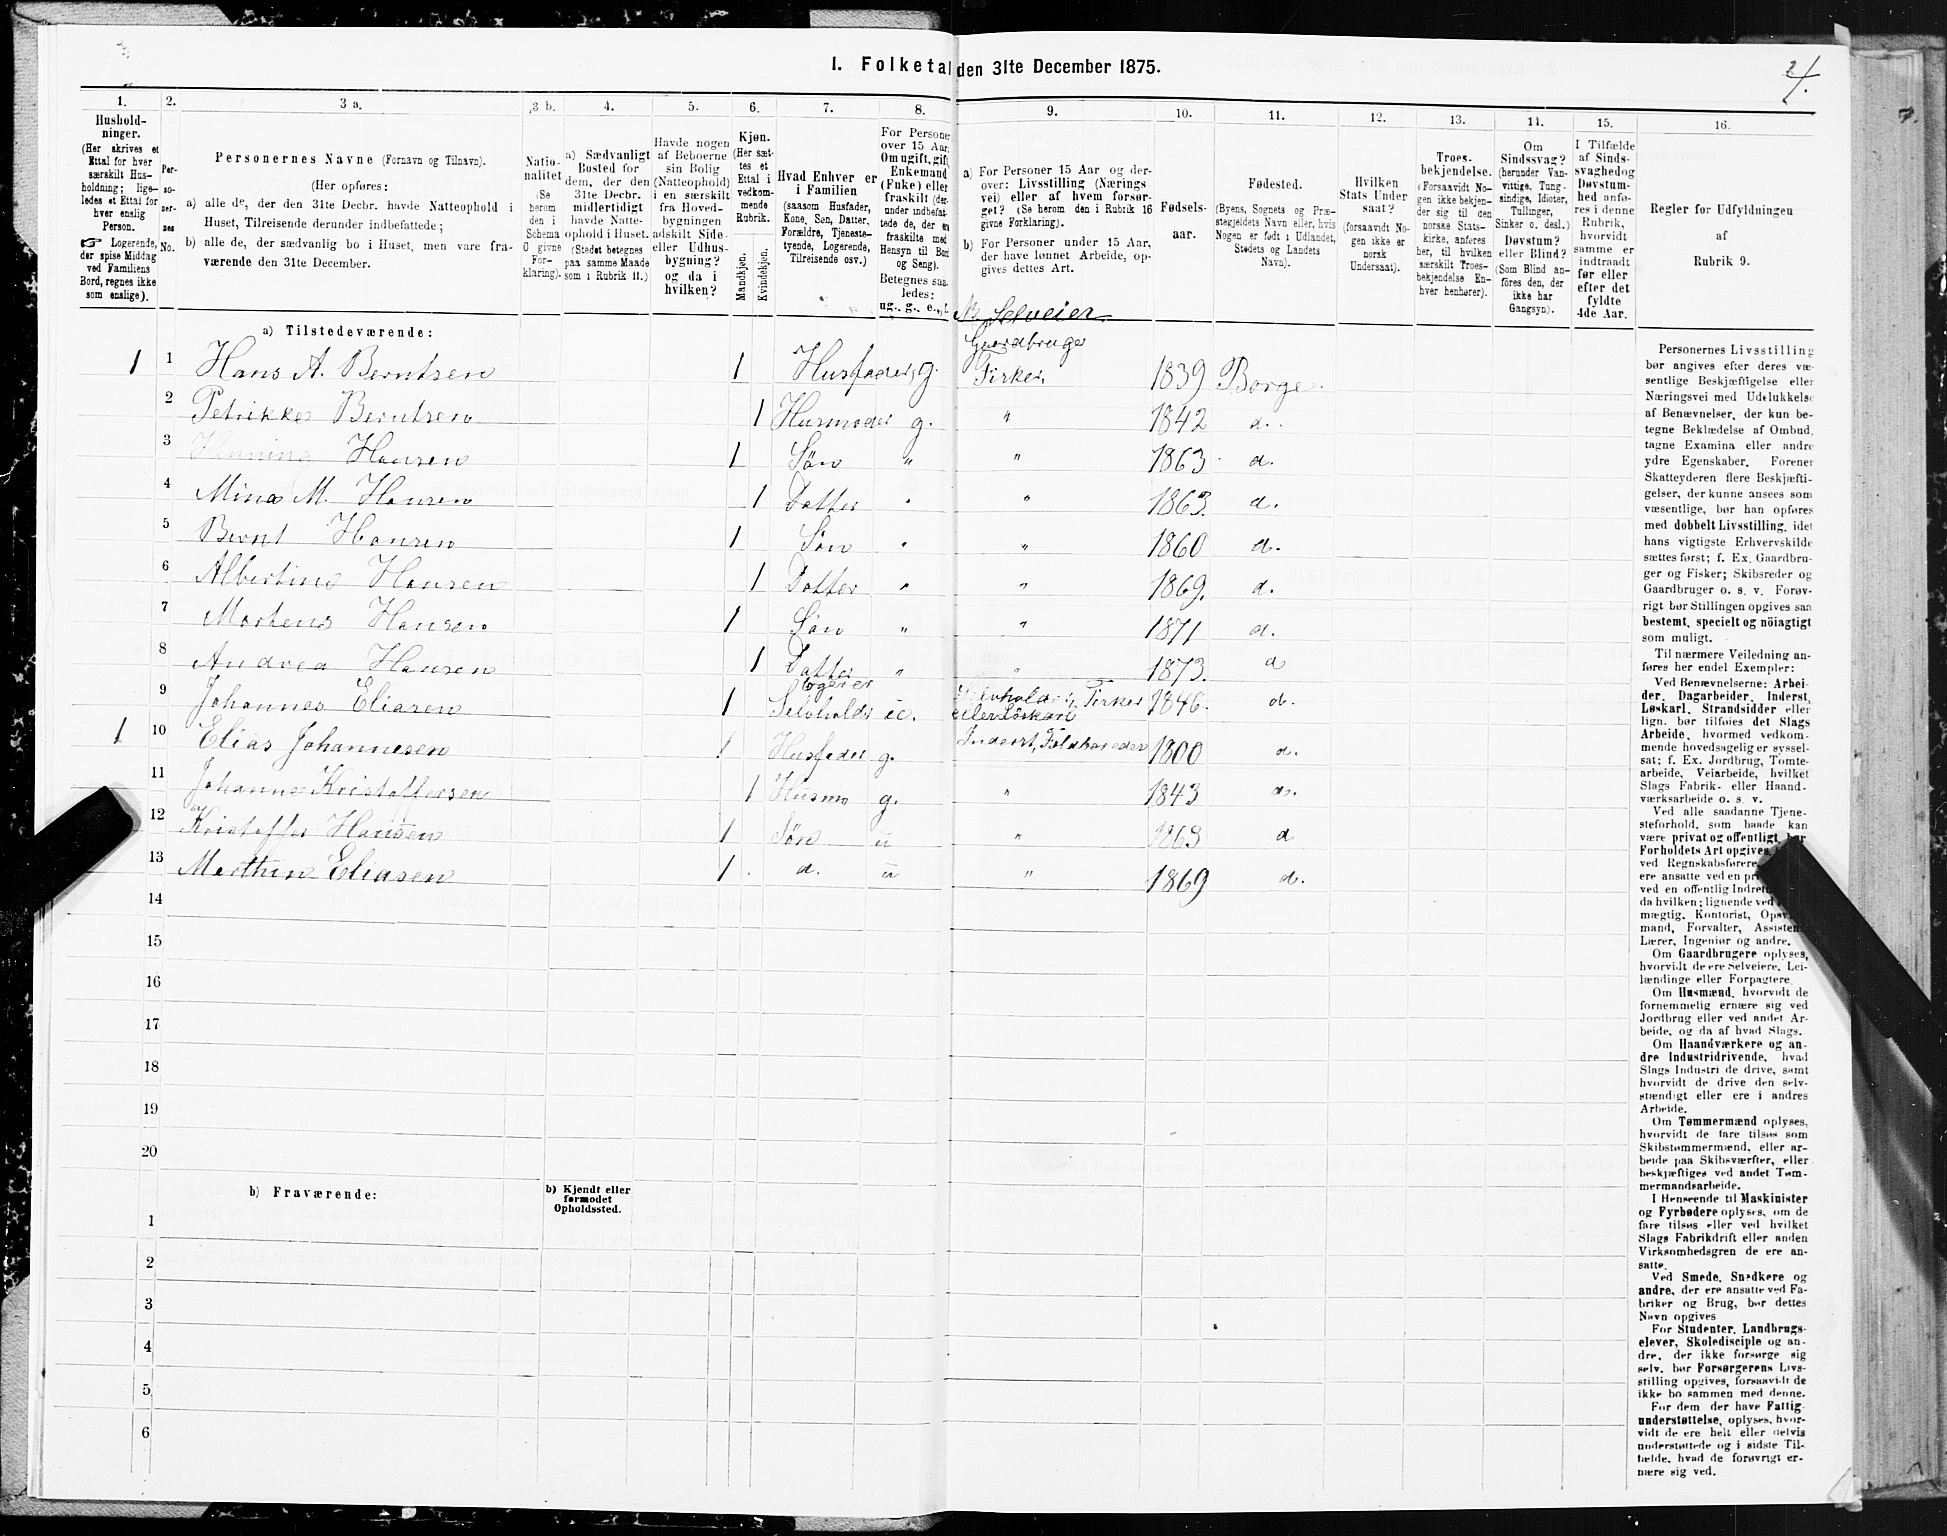 1. Folketal den 31te December 1875.
4.
1.
Hushold-
ninger.
(Her skrives et
Ettal for hver
særskilt Hus-
holdning; lige-
ledes et Ettal for
hver enslig
Person.
☞ Logerende,
der spise Middag
ved Familiens
Bord, regnes ikke
som enslige).
2.
Per-
so-
ner-
nes
No.
3 a.
Personernes Navne (Fornavn og Tilnavn).
(Her opføres:
a) alle de, der den 31te Decbr. havde Natteophold i
Huset, Tilreisende derunder indbefattede;
b) alle de, der sædvanlig bo i Huset, men vare fra-
værende den 31te December.
3 b.
Natio-
nalitet
(Se
herom
den i
Schema
O givne
For-
klaring).
4.
a) Sædvanligt
Bosted for
dem, der den
31te Decbr.
midlertidigt
havde Natte-
ophold i Huset.
(Stedet betegnes
paa samme Maade
som i Rubrik 11.)
5.
Havde nogen
af Beboerne
sin Bolig
(Natteophold)
i en særskilt
fra Hoved-
bygningen
adskilt Side-
eller Udhus-
bygning?
og da i
hvilken?
6.
Kjøn.
(Her sæt-
tes et
Ettal i
vedkom-
mende
Rubrik.
Mandkjøn.
Kvindekjøn.
7.
Hvad Enhver er
i Familien
(saasom Husfader,
Kone, Søn, Datter,
Forældre, Tjeneste-
tyende, Logerende,
Tilreisende osv.)
8.
For Personer
over 15 Aar:
Om ugift, gift,
Enkemand
(Enke) eller
fraskilt (der-
under indbefat-
tede de, der ere
fraskilte med
Hensyn til Bord
og Seng).
Betegnes saa-
ledes:
ug., g., e., f.
9.
a) For Personer 15 Aar og der-
over: Livsstilling (Nærings-
vei) eller af hvem forsør-
get? (Se herom den i Rubrik 16
givne Forklaring).
b) For Personer under 15 Aar,
der have lønnet Arbeide, op-
gives dettes Art.
10.
Fødsels-
aar.
11.
Fødested.
(Byens, Sognets og Præ-
stegjeldets Navn eller, hvis
Nogen er født i Udlandet,
Stedets og Landets
Navn).
12.
Hvilken
Stats Under-
saat?
(forsaavidt No-
gen ikke er
norsk
Undersaat).
13.
Troes-
bekjendelse.
(Forsaavidt No-
gen ikke bekjen-
der sig til den
norske Stats-
kirke, anføres
her, til hvilken
særskilt Troes-
bekjendelse En-
hver henhører).
14.
Om
Sindssvag?
(herunder Van-
vittige, Tung-
sindige, Idioter,
Tullinger,
Sinker o. desl.)
Døvstum?
eller Blind?
(Som Blind an-
føres den, der
ikke har
Gangsyn).
15.
I Tilfælde
af Sinds-
svaghed og
Døvstum-
hed anfø-
res i denne
Rubrik,
hvorvidt
samme er
indtraadt
før eller
efter det
fyldte
4de Aar.
16.
Regler for Udfyldningen
af
Rubrik 9.
a) Tilstedeværende:
Selveier
Gaardbruger
1 1 Hans A. Berntsen 1 Husfader, g. Fisker, 1839 Borge.
2 Petrikke Berntsen 1 Husmoder g. " 1842 d.
3 Henning Hansen 1 Søn " " 1863 d.
4 Mina M. Hansen 1 Datter " " 1863. d.
5 Bernt Hansen 1 Søn " " 1860 d.
6 Albertine Hansen 1 Datter " " 1869. d.
7 Martens Hansen 1 Søn " " 1871 d.
8 Andrea Hansen 1 Datter " " 1873. d
logerer
9 Johannes Eliasen 1 Selvholds u. Selvholder, Fisker 1846. d.
eller Löskarl
1 10 Elias Johannesen 1 Husfader g. Inderst, 1800 d.
11 Johanna Kristoffersen 1 Husmo g. " 1843 d.
12 Kristoffer Hansen 1 Søn u " 1863 d
13 Marthin Eliasen 1 d. u " 1869 d.
14
15
16
17
18
19
20
b) Fraværende:
b) Kjendt eller
formodet
Opholdssted.
1
2
3
4
5
6
Personernes Livsstilling
bør angives efter deres væ-
sentlige Beskjæftigelse eller
Næringsvei med Udelukkelse
af Benævnelser, der kun be-
tegne Beklædelse af Ombud,
tagne Examina eller andre
ydre Egenskaber. Forener
Skatteyderen flere Beskjæfti-
gelser, der kunne ansees som
væsentlige, bør han opføres
med dobbelt Livsstilling, idet
hans vigtigste Erhvervskilde
sættes først; f. Ex. Gaardbru-
ger og Fisker; Skibsreder og
Gaardbruger o. s. v. Forøv-
rigt bør Stillingen opgives saa
bestemt, specielt og nöiagtigt
som muligt.
Til nærmere Veiledning an-
føres her endel Exempler:
Ved Benævnelserne: Arbei-
der, Dagarbeider, Inderst,
Løskarl, Strandsidder eller
lign. bør tilføies det Slags
Arbeide, hvormed vedkom-
mende hovedsagelig er syssel-
sat; f. Ex. Jordbrug, Tomte-
arbeide, Veiarbeide, hvilket
Slags Fabrik- eller Haand-
værksarbeide o. s. v.
Ved alle saadanne Tjene-
steforhold, som baade kan
være privat og offentligt, bør
Forholdets Art opgives,
ved Regnskabsførere,
ere ansatte ved en
ved en offentlig
da hvilken; lignende ved
mægtig, Kontorist,
mand, Forvalter,
Lærer, Ingeniør og andre.
Om Gaardbrugere oplyses,
hvorvidt de ere Selveiere, Lei-
lændinge eller Forpagtere.
Om Husmænd, hvorvidt de
fornemmelig ernære sig ved
Jordbrug eller ved andet Ar-
beide, og da af hvad Slags.
Om Haandværkere og an-
dre Industridrivende, hvad
Slags Industri de drive, samt
hvorvidt de drive den selv-
stændigt eller ere i andres
Arbeide.
Om Tømmermænd oplyses,
hvorvidt de fare tilsøs som
Skibstømmermænd, eller ar-
beide paa Skibsværfter, eller
beskjæftiges ved andet Tøm-
mermandsarbeide.
I Henseende til Maskinister
og Fyrbødere oplyses, om de
fare tilsøs eller ved hvilket
Slags Fabrikdrift eller anden
Virksomhedsgren de ere an-
satte.
Ved Smede, Snedkere og
andre, der ere ansatte ved Fa-
briker og Brug, bør dettes
Navn opgives
For Studenter, Landbrugs-
elever, Skoledisciple og an-
dre, der ikke forsørge sig
selv, bør Forsørgerens Livs-
stilling opgives, forsaavidt de
ikke bo sammen med denne.
For dem, der have Fattig-
understøttelse, oplyses, hvor-
vidt de ere helt eller delvis
understøttede og i sidste Til-
fælde, hvad de forøvrigt er-
nære sig ved.